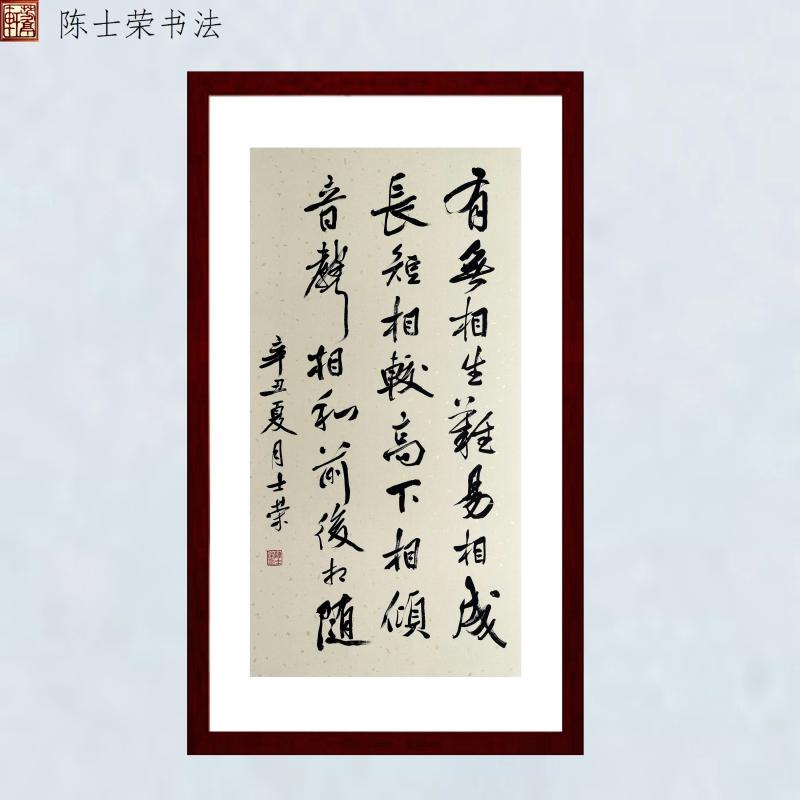 陈士荣书法
有無相生難易相成
長短相較高下相傾
音聲相和前後相随
辛丑夏月士荣